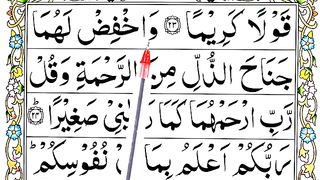 قَوْلًا كَرِيْمًا ۝٢٣ وَاخْفِضْ لَهُمَا
جَنَاحَ الذُّلِّ مِنَ الرَّحْمَةِ وَقُلْ
رَّبِّ ارْحَمْهُمَا كَمَا صَغِيْرًا ؕ
رَبُّكُمْ اَعْلَمُ بِمَا نُفُوْسِكُمْ ؕ